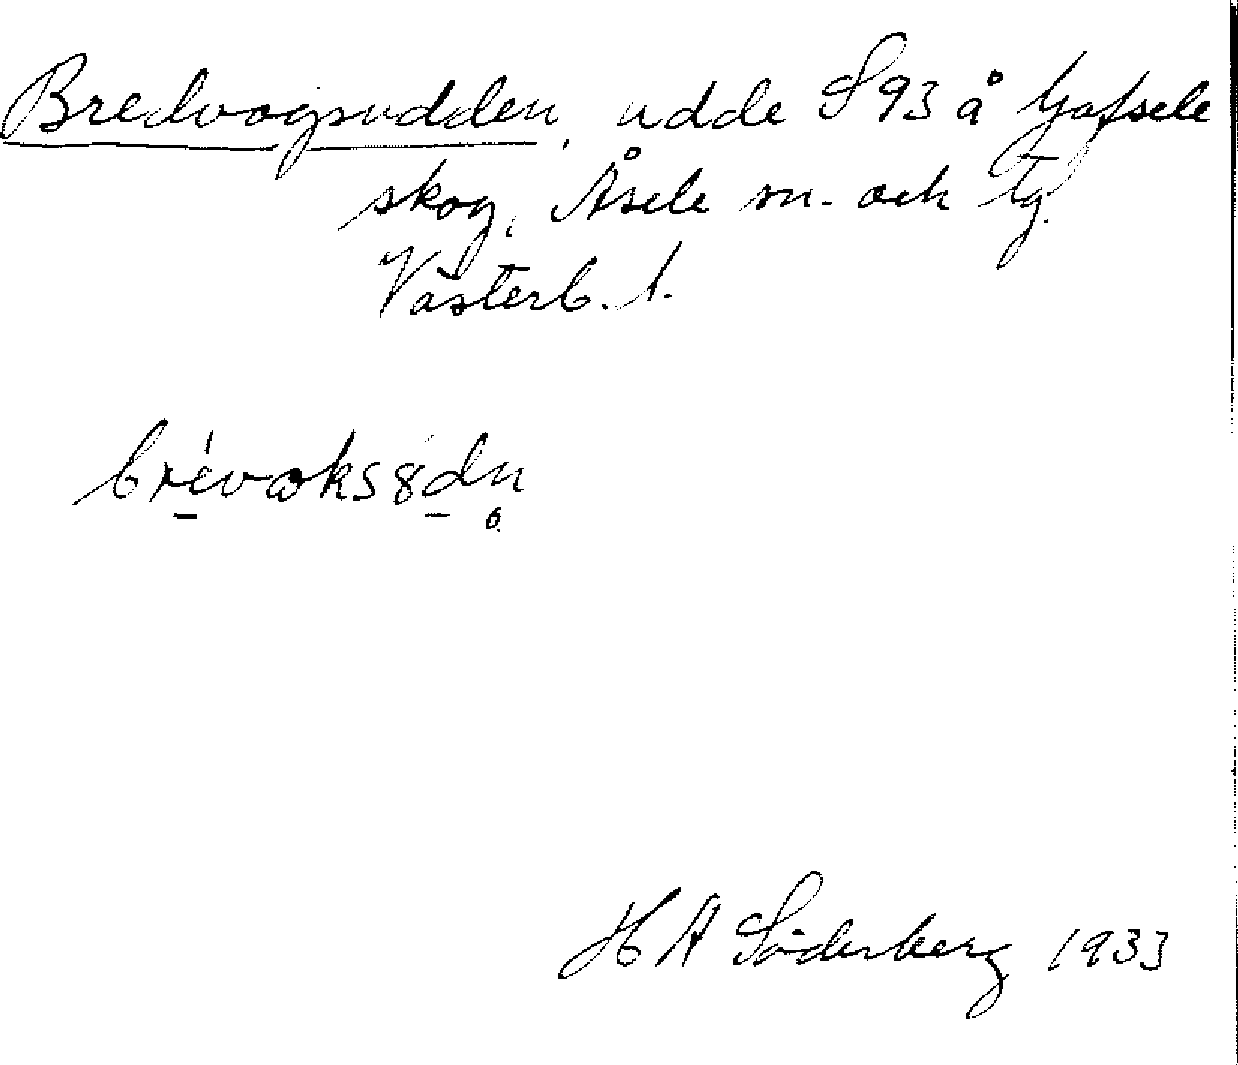 Bredvogsudden, udde S93 å Gafsele
skog, Åsele sn. och tg.
Västerb. l.
H A Söderberg 1933